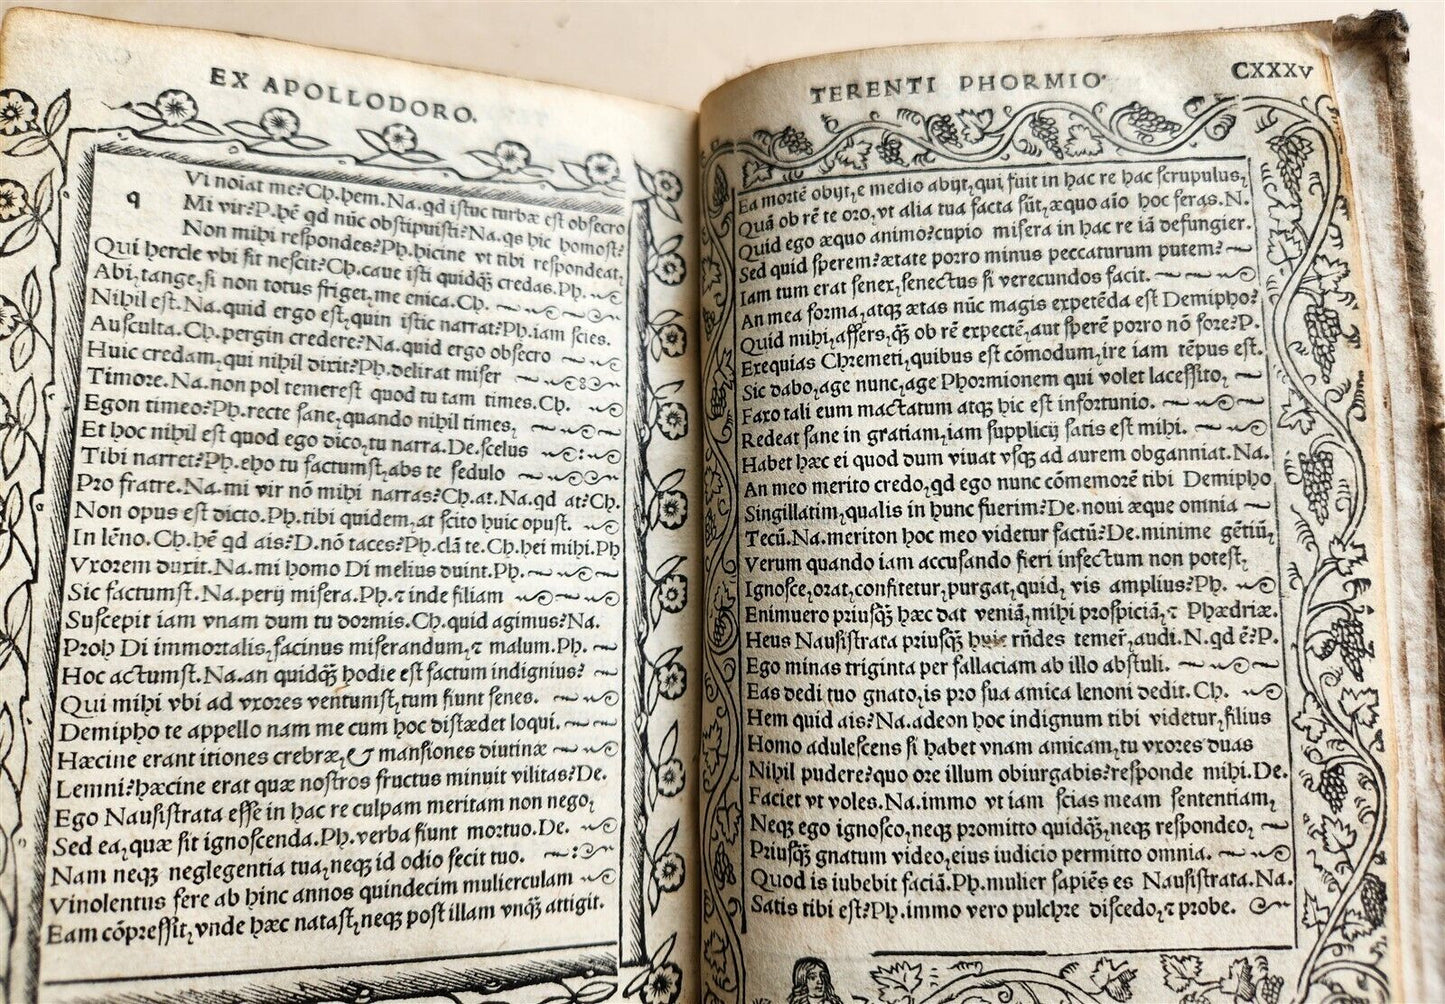 EX APOLLODORO.
q
Vi noīat me?Ch.hem.Na.qd istuc turbæ est obsecro
Mi vir?P.hē qd nūc obstipuisti?Na.qs hic homost?
Non mihi respondes?Ph.hicine vt tibi respondeat,
Qui hercle vbi sit nescit?Ch.caue isti quidq̃ credas.Ph.
Abi,tange,si non totus friget,me enica.Ch.
Nihil est.Na.quid ergo est,quin istic narrat?Ph.iam scies.
Ausculta.Ch.pergin credere?Na.quid ergo obsecro
Huic credam,qui nihil dixit?Ph.delirat miser
Timore.Na.non pol temerest quod tu tam times.Ch.
Egon timeo?Ph.recte sane,quando nihil times,
Et hoc nihil est quod ego dico,tu narra.De.scelus
Tibi narret?Ph.eho tu factumst,abs te sedulo
Pro fratre.Na.mi vir nō mihi narras?Ch.at.Na.qd at?Ch.
Non opus est dicto.Ph.tibi quidem,at scito huic opust.
In lēno.Ch.hē qd ais?D.nō taces?Ph.clā te.Ch.hei mihi.Ph
Vxorem duxit.Na.mi homo Di melius duint.Ph.
Sic factumst.Na.perij misera.Ph.⁊ inde filiam
Suscepit iam vnam dum tu dormis.Ch.quid agimus?Na.
Proh Di immortalis,facinus miserandum,⁊ malum.Ph.
Hoc actumst.Na.an quidq̃ hodie est factum indignius?
Qui mihi vbi ad vxores ventumst,tum fiunt senes.
Demipho te appello nam me cum hoc distædet loqui.
Hæcine erant itiones crebræ,& mansiones diutinæ
Lemni?hæcine erat quæ nostros fructus minuit vilitas?De.
Ego Nausistrata esse in hac re culpam meritam non nego,
Sed ea,quæ sit ignoscenda.Ph.verba fiunt mortuo.De.
Nam neqꝫ neglegentia tua,neqꝫ id odio fecit tuo.
Vinolentus fere ab hinc annos quindecim mulierculam
Eam cōpressit,vnde hæc natast,neqꝫ post illam vnq̃ attigit.
TERENTI PHORMIO
CXXXV
Ea mortē obijt,e medio abijt,qui fuit in hac re hac scrupulus,
Quā ob rē te oro,vt alia tua facta sūt,æquo aīo hoc feras.N.
Quid ego æquo animo?cupio misera in hac re iā defungier.
Sed quid sperem?ætate porro minus peccaturum putem?
Iam tum erat senex,senectus si verecundos facit.
An mea forma,atqꝫ ætas nūc magis expetēda est Demipho?
Quid mihi,affers,q̃ ob rē expectē,aut sperē porro nō fore?P.
Exequias Chremeti,quibus est cōmodum,ire iam tēpus est.
Sic dabo,age nunc,age Phormionem qui volet lacessito,
Faxo tali eum mactatum atqꝫ hic est infortunio.
Redeat sane in gratiam,iam supplicij satis est mihi.
Habet hæc ei quod dum viuat vsq̃ ad aurem obganniat.Na.
An meo merito credo,qd ego nunc cōmemorē tibi Demipho
Singillatim,qualis in hunc fuerim?De.noui æque omnia
Tecū.Na.meriton hoc meo videtur factū?De.minime gētiū,
Verum quando iam accusando fieri infectum non potest,
Ignosce,orat,confitetur,purgat,quid, vis amplius?Ph.
Enimuero priusq̃ hæc dat veniā,mihi prospiciā,⁊ Phædriæ.
Heus Nausistrata priusq̃ huic rñdes temer,audi.N.qd ē?P.
Ego minas triginta per fallaciam ab illo abstuli.
Eas dedi tuo gnato,is pro sua amica lenoni dedit.Ch.
Hem quid ais?Na.adeon hoc indignum tibi videtur,filius
Homo adulescens si habet vnam amicam,tu vxores duas
Nihil pudere?quo ore illum obiurgabis?responde mihi.De.
Faciet vt voles.Na.immo vt iam scias meam sententiam,
Neqꝫ ego ignosco,neqꝫ promitto quidq̃,neqꝫ respondeo,
Priusq̃ gnatum video,eius iudicio permitto omnia.
Quod is iubebit faciā.Ph.mulier sapiēs es Nausistrata.Na.
Satis tibi est?Ph.immo vero pulchre discedo,⁊ probe.